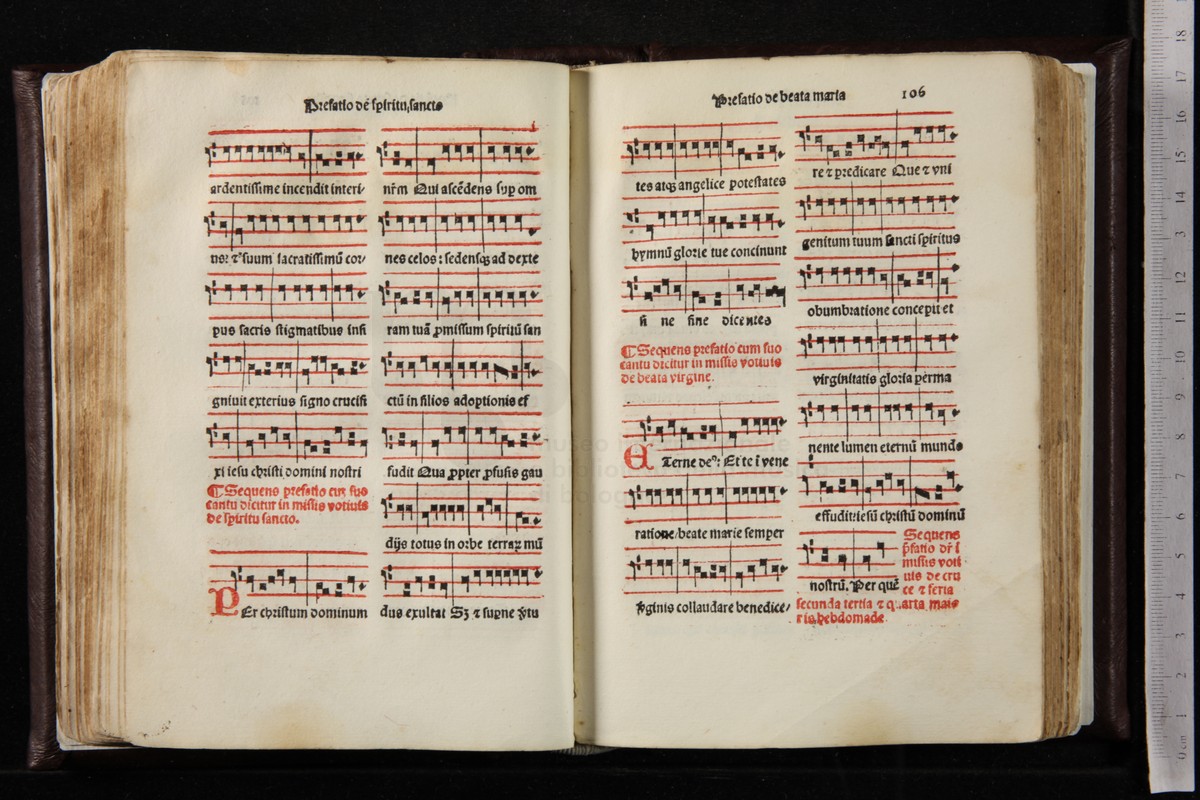 Prefatio de spiritu sancto
ardentissime incendit interi/
us: ⁊ suum sacratissimū cor/
pus sacris stigmatibus insi
gniuit exterius signo crucifi
xi iesu christi domini nostri
¶ Sequens prefatio cum suo
cantu dicitur in missis votiuis
de spiritu sancto.
PEr christum dominum
nr̄m Qui ascēdens sup om
nes celos: sedensqꝫ ad dexte
ram tuā ꝓmissum spiritū san
ctū in filios adoptionis ef
fudit Qua ꝓpter ꝓfusis gau
dijs totus in orbe terraꝝ mū
dus exultat Sꝫ ⁊ supne v̄tu
Prefatio de beata maria 106
tes atqꝫ angelice potestates
hymnū glorie tue concinunt
si ne fine dicentes
¶ Sequens prefatio cum suo
cantu dicitur in missis votiuis
de beata virgine.
ETerne de⁹: Et te ī vene
ratione beate marie semper
v̄ginis collaudare benedice/
re ⁊ predicare Que ⁊ vni
genitum tuum sancti spiritus
obumbratione concepit et
virginitatis gloria perma
nente lumen eternū mundo
effudit iesū christū dominū
nostrū. Per quē
Sequens
p̄fatio dr̄ ī
missis voti
uis de cru
ce ⁊ feria
secunda tertia ⁊ quarta maio
ris hebdomade
museo
biblioteca
di bologna